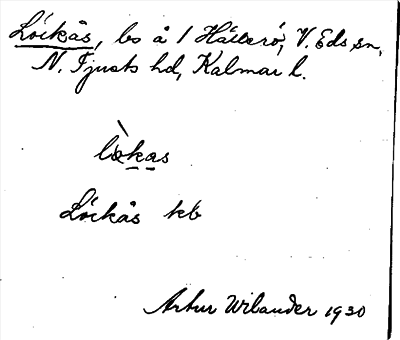 Löckås, bs å 1 Hätterö, V. Eds sn,
N. Tjusts hd, Kalmar l.
lœ̀kas
Löckås kb
Artur Wilander 1930